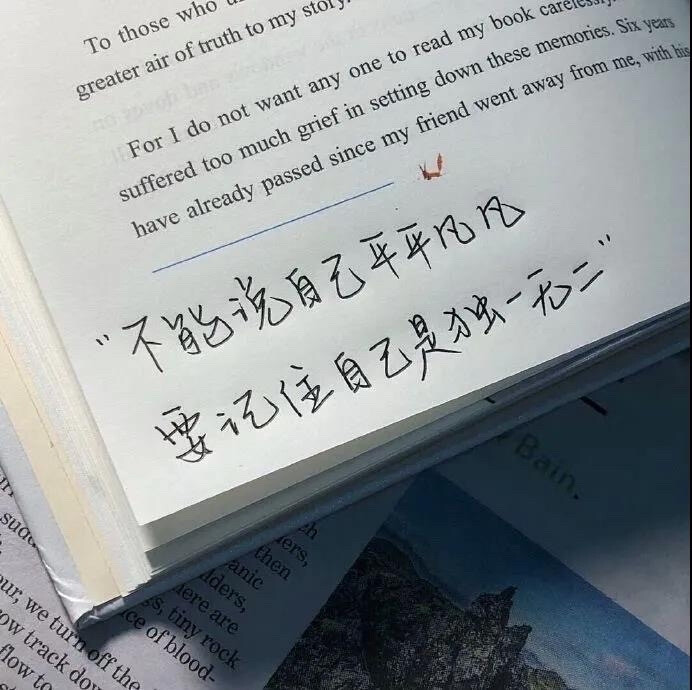 To those who
greater air of truth to my story.
For I do not want any one to read my book carelessly.
suffered too much grief in setting down these memories. Six years
have already passed since my friend went away from me, with his
“不能说自己平平凡凡
要记住自己是独一无二”
Bain.
then
anic
lders,
here are
s, tiny rock
ce of blood-
our, we turn off the
ow track dow
flow to